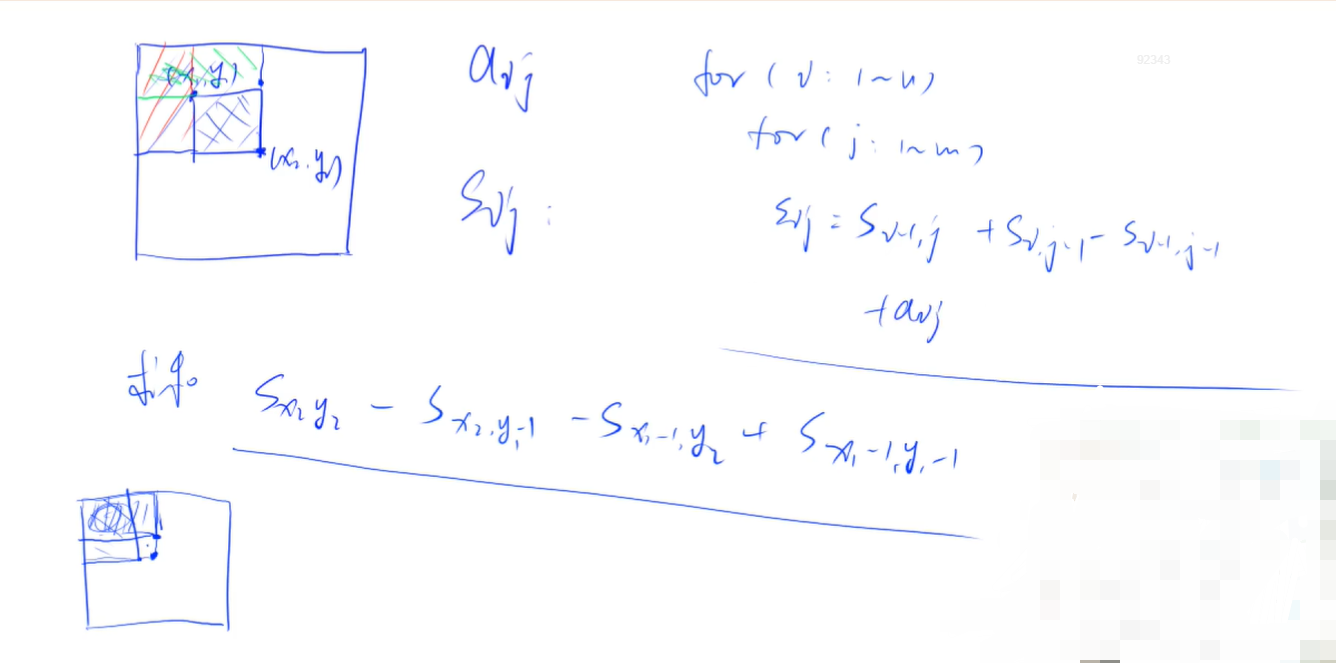 (x₁, y₁)
(x₂, y₂)
aᵢⱼ
Sᵢⱼ :
for ( i : 1~n)
for ( j : 1~m)
Sᵢⱼ = Sᵢ₋₁,ⱼ + Sᵢ,ⱼ₋₁ - Sᵢ₋₁,ⱼ₋₁
+ aᵢⱼ
S_{x₂y₂} - S_{x₂,y₁-1} - S_{x₁-1,y₂} + S_{x₁-1,y₁-1}
92343